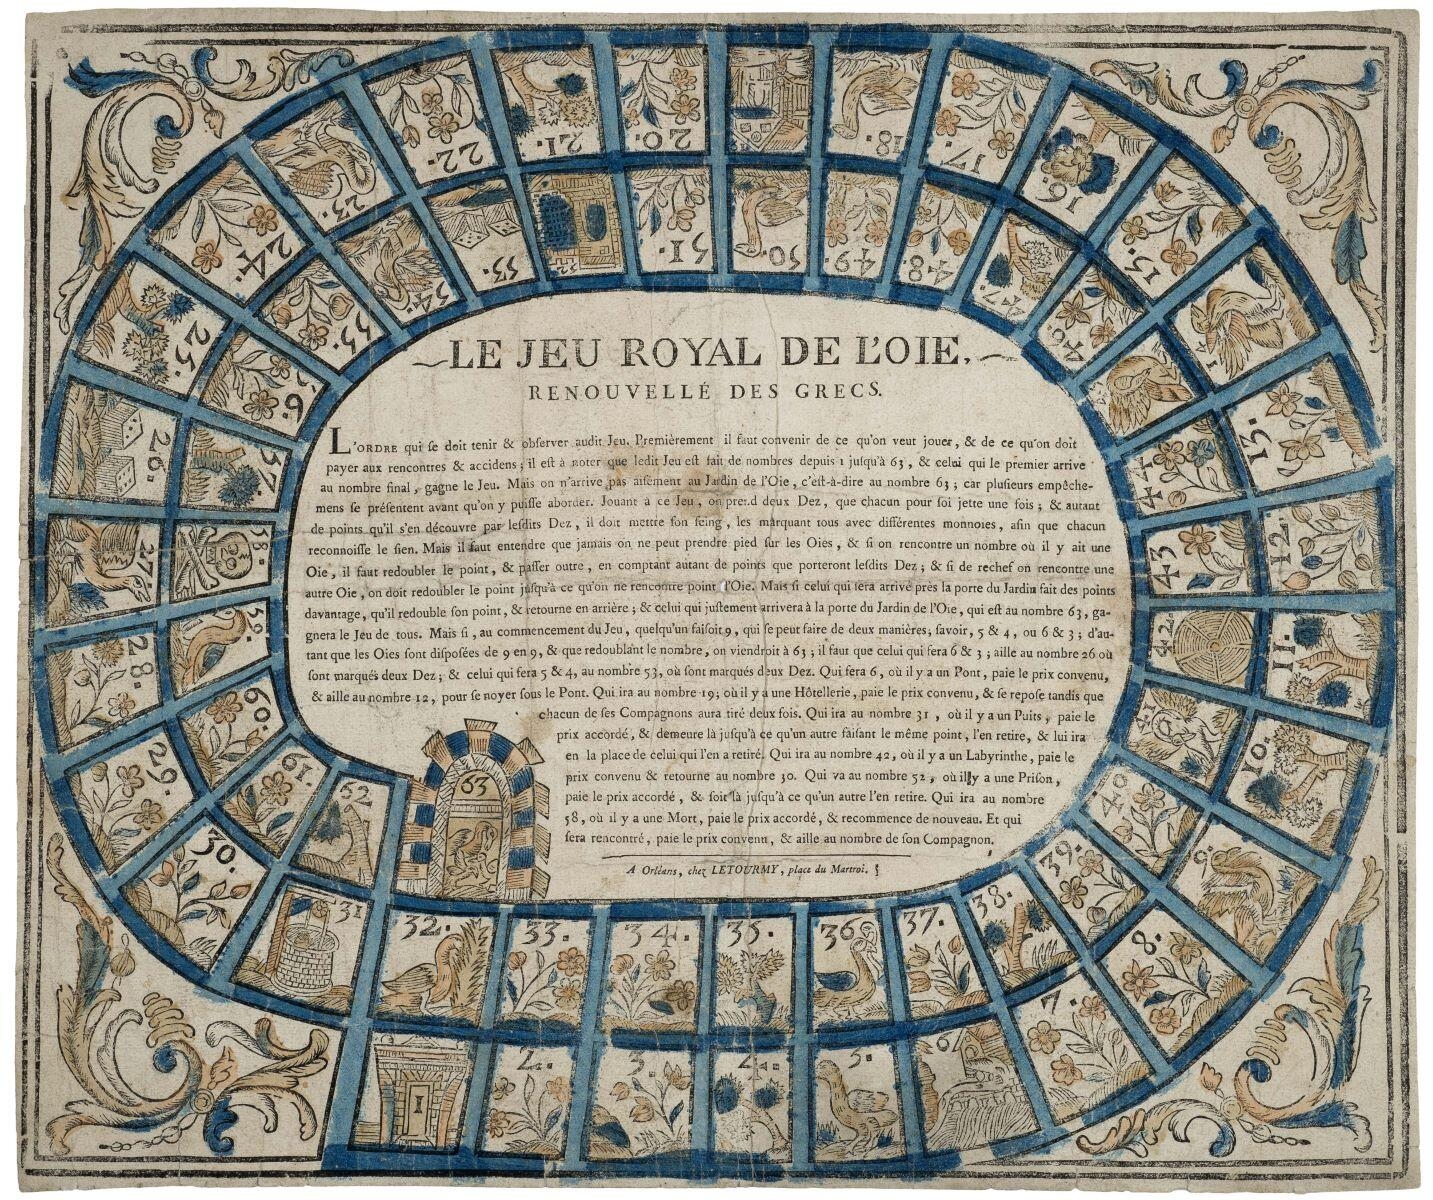 LE JEU ROYAL DE L'OIE,
RENOUVELLÉ DES GRECS.
L'ORDRE qui se doit tenir & observer audit Jeu. Premièrement il faut convenir de ce qu'on veut jouer, & de ce qu'on doit
payer aux rencontres & accidens; il est à noter que ledit Jeu est fait de nombres depuis 1 jusqu'à 63, & celui qui le premier arrive
au nombre final, gagne le Jeu. Mais on n'arrive pas aisément au Jardin de l'Oie, c'est-à-dire au nombre 63; car plusieurs empêche-
mens se présentent avant qu'on y puisse aborder. Jouant à ce Jeu, on prend deux Dez, que chacun pour soi jette une fois; & autant
de points qu'il s'en découvre par lesdits Dez, il doit mettre son seing, les marquant tous avec différentes monnoies, afin que chacun
reconnoisse le sien. Mais il faut entendre que jamais on ne peut prendre pied sur les Oies, & si on rencontre un nombre où il y ait une
Oie, il faut redoubler le point, & passer outre, en comptant autant de points que porteront lesdits Dez; & si de rechef on rencontre une
autre Oie, on doit redoubler le point jusqu'à ce qu'on ne rencontre point l'Oie. Mais si celui qui sera arrivé près la porte du Jardin fait des points
davantage, qu'il redouble son point, & retourne en arrière; & celui qui justement arrivera à la porte du Jardin de l'Oie, qui est au nombre 63, ga-
gnera le Jeu de tous. Mais si, au commencement du Jeu, quelqu'un faisoit 9, qui se peut faire de deux manières; savoir, 5 & 4, ou 6 & 3; d'au-
tant que les Oies sont disposées de 9 en 9, & que redoublant le nombre, on viendroit à 63; il faut que celui qui fera 6 & 3; aille au nombre 26 où
sont marqués deux Dez; & celui qui fera 5 & 4, au nombre 53, où sont marqués deux Dez. Qui fera 6, où il y a un Pont, paie le prix convenu,
& aille au nombre 12, pour se noyer sous le Pont. Qui ira au nombre 19; où il y a une Hôtellerie, paie le prix convenu, & se repose tandis que
chacun de ses Compagnons aura tiré deux fois. Qui ira au nombre 31, où il y a un Puits, paie le
prix accordé, & demeure là jusqu'à ce qu'un autre faisant le même point, l'en retire, & lui ira
en la place de celui qui l'en a retiré. Qui ira au nombre 42, où il y a un Labyrinthe, paie le
prix convenu & retourne au nombre 30. Qui va au nombre 52, où il y a une Prison,
paie le prix accordé, & soit là jusqu'à ce qu'un autre l'en retire. Qui ira au nombre
58, où il y a une Mort, paie le prix accordé, & recommence de nouveau. Et qui
sera rencontré, paie le prix convenu, & aille au nombre de son Compagnon.
A Orléans, chez LETOURMY, place du Martroi.
1
2.
3.
4.
5.
6
7.
8.
9.
10.
11.
12.
13.
15.
16.
17.
18.
20.
21.
22.
23.
24.
25.
26.
27.
28.
29.
30.
31
32.
33.
34.
35.
36
37.
38.
39.
40
41
42
43
44
46
47
48
49
50.
51.
53.
54.
55.
56.
57.
58.
59.
60.
61.
62
63